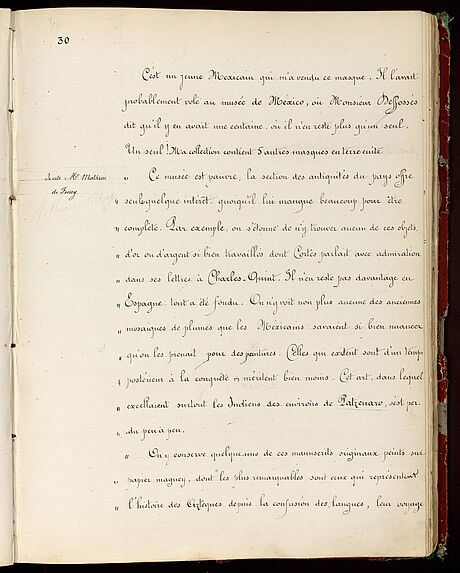 30
C'est un jeune Mexicain qui m'a vendu ce masque. Il l'avait
probablement volé au musée de Mexico, où Monsieur Desfossés
dit qu'il y en avait une centaine, où il n'en reste plus qu'un seul.
Un seul! Ma collection contient 5 autres masques en terre cuite
Suite Mr. Mathieu
de Fossey.
" Ce musée est pauvre, la section des antiquités du pays offre
" seule quelque intérêt, quoiqu'il lui manque beaucoup pour être
" complète. Par exemple, on s'étonne de n'y trouver aucun de ces objets
" d'or ou d'argent si bien travaillés dont Cortès parlait avec admiration
" dans ses lettres à Charles-Quint. Il n'en reste pas davantage en
" Espagne: tout a été fondu. On n'y voit non plus aucune des anciennes
" mosaïques de plumes que les Mexicains savaient si bien nuancer
" qu'on les prenait pour des peintures. Celles qui existent sont d'un temps
" postérieur à la conquête et méritent bien moins. Cet art, dans lequel
" excellaient surtout les Indiens des environs de Patzcuaro, s'est per-
" du peu à peu.
" On y conserve quelques-uns de ces manuscrits originaux peints sur
" papier maguey, dont les plus remarquables sont ceux qui représentent
" l'histoire des Aztèques depuis la confusion des langues, leur voyage